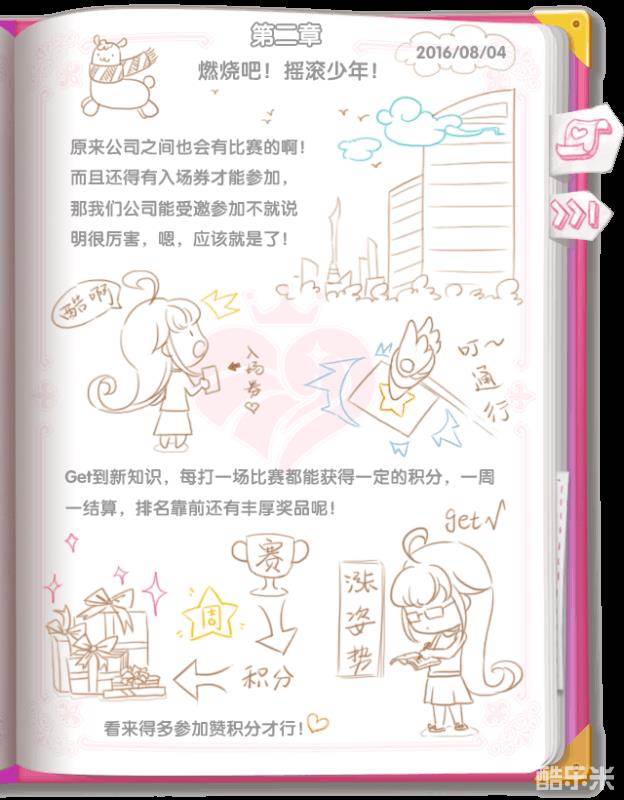 第二章
2016/08/04
燃烧吧！摇滚少年！
原来公司之间也会有比赛的啊！
而且还得有入场券才能参加，
那我们公司能受邀参加不就说
明很厉害，嗯，应该就是了！
酷啊
入场券
叮~
通行
Get到新知识，每打一场比赛都能获得一定的积分，一周
一结算，排名靠前还有丰厚奖品呢！
get√
赛
涨姿势
周
积分
看来得多参加赞积分才行！
酷乐米